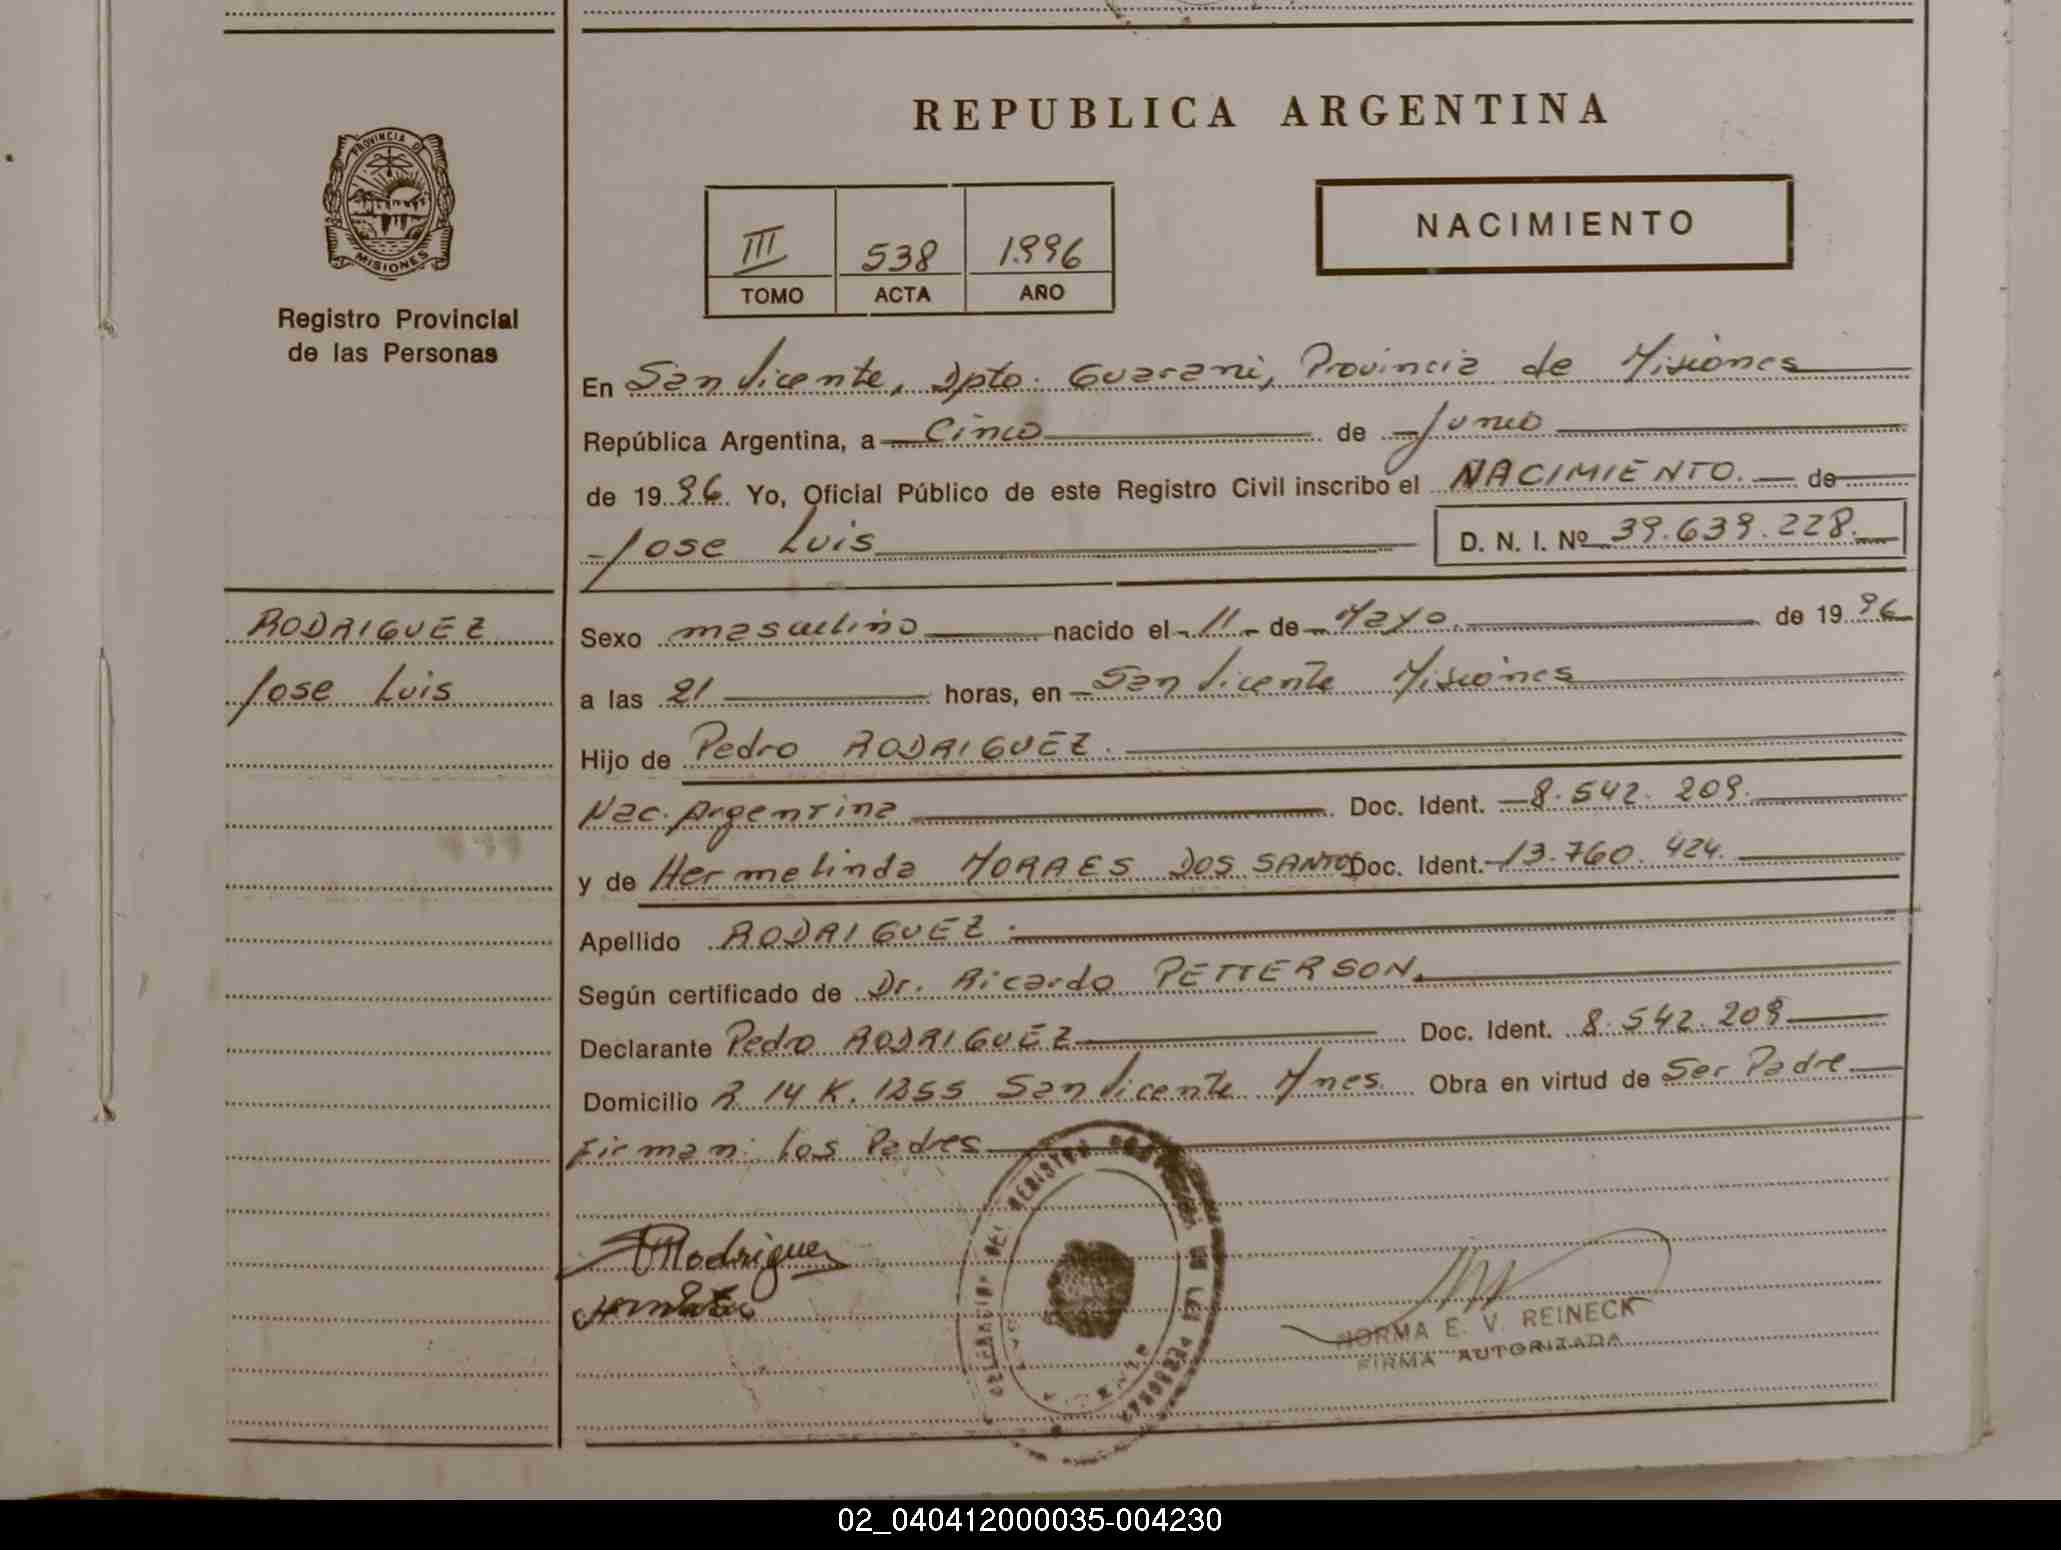 REPUBLICA ARGENTINA
PROVINCIA DE
MISIONES
Registro Provincial
de las Personas
III 538 1996
TOMO ACTA AÑO
NACIMIENTO
En San Vicente, Dpto. Guarani, Provincia de Misiones
República Argentina, a Cinco de Junio
de 1996 Yo, Oficial Público de este Registro Civil inscribo el NACIMIENTO. de
Jose Luis D. N. I. Nº 39.639.228.
RODRIGUEZ
Jose Luis
Sexo masculino nacido el 11 de Mayo. de 1996
a las 21 horas, en San Vicente Misiones
Hijo de Pedro RODRIGUEZ.
Nac. Argentina Doc. Ident. 8.542.209.
y de Hermelinda MORAES DOS SANTOS Doc. Ident. 13.760.424.
Apellido RODRIGUEZ.
Según certificado de Dr. Ricardo PETTERSON.
Declarante Pedro RODRIGUEZ Doc. Ident. 8.542.209
Domicilio R 14 K. 1255 San Vicente Mnes. Obra en virtud de Ser Padre
Firman: Los Padres
Rodriguez
NORMA E. V. REINECK
FIRMA AUTORIZADA
02_040412000035-004230